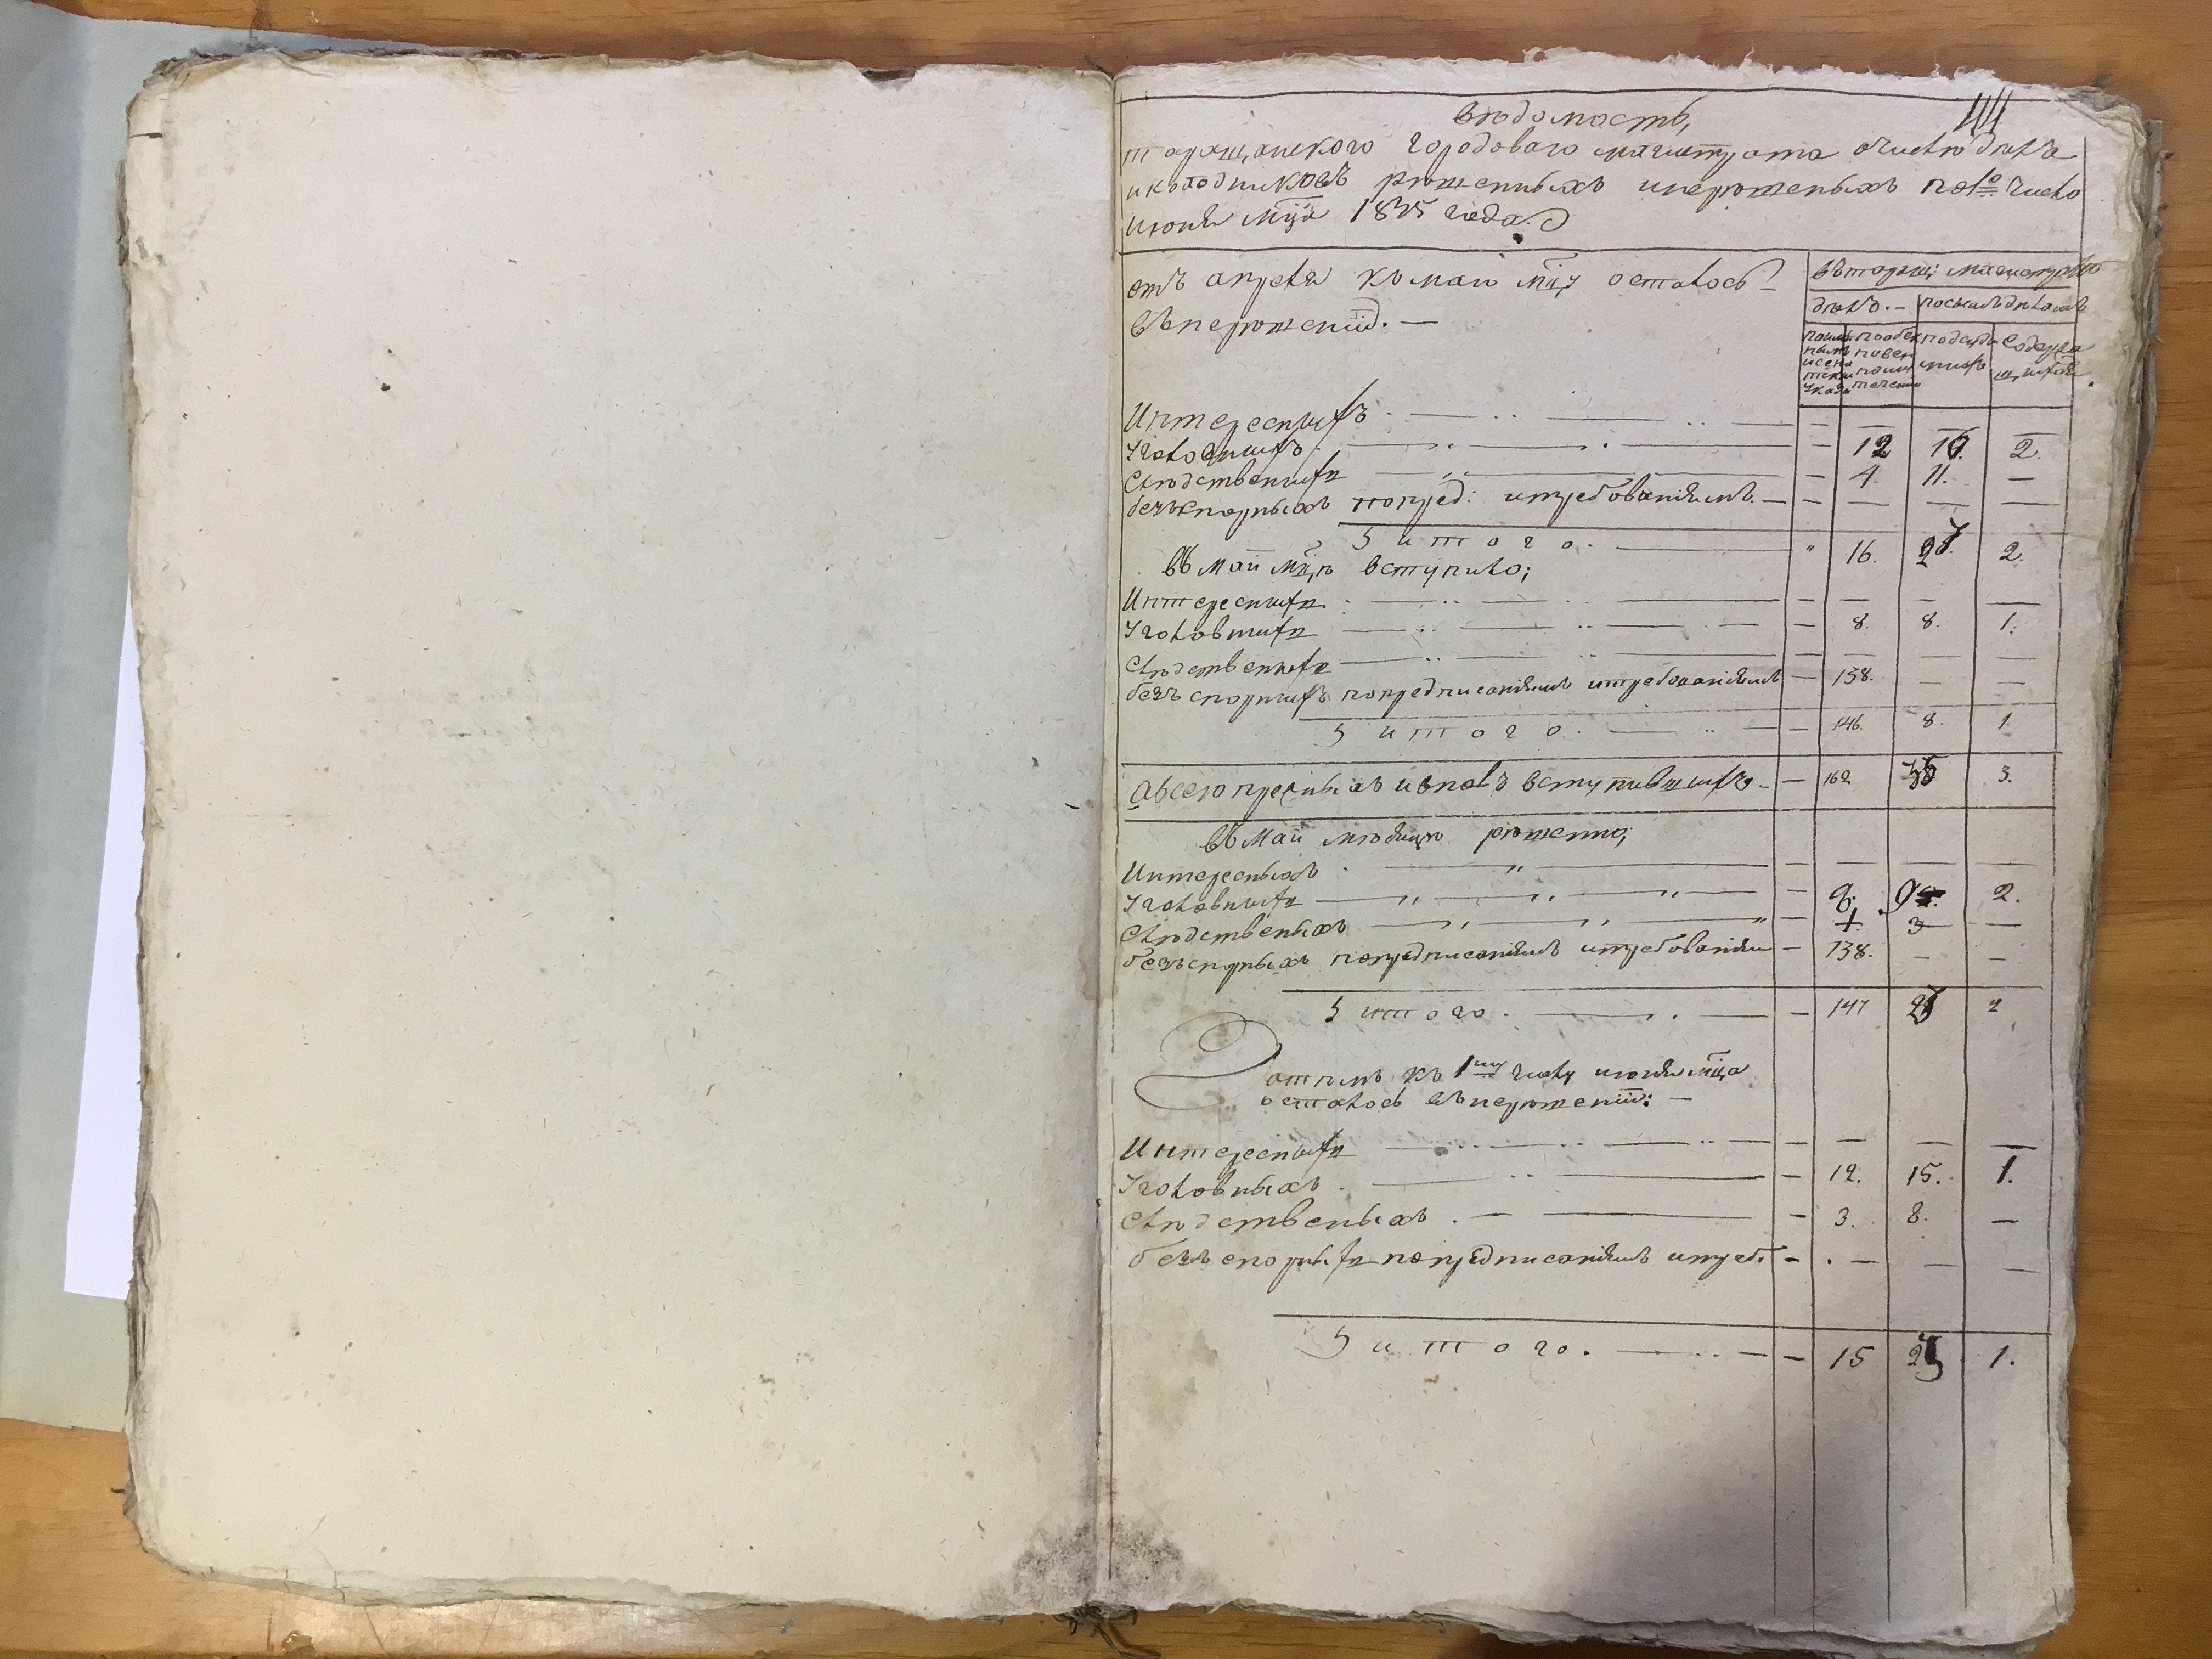 вѣдомость,
таращанского городоваго магистрата очислѣ дѣлъ
иколодниковъ рѣшенныхъ инерѣшеныхъ по 1е число
июня мца 1835 года.
отъ апреля къ маю мцу осталось
въ нерѣшенiи. —
въ таращ: магистратѣ
дѣлъ. — посымъ дѣламъ
подсуди мыхъ
содержа щихся
Интересныхъ — — — —
Уголовныхъ — — 12 16. 2.
Следственныхъ — — 4. 11. —
безъспорныхъ попред: итребованiямъ. — — — — —
Итого. — " 16. 27. 2.
въ маи мцѣ вступило;
Интересныхъ — — — — —
Уголовныхъ — — 8. 8. 1.
Следственыхъ — — — — —
безъ спорныхъ попредписанiямъ итребованiямъ — 138. — —
Итого. — — 146. 8. 1
Авсего прежныхъ ивновъ вступившихъ — — 162 35 3.
въ маи мѣсяцѣ рѣшенно;
Интересныхъ — — — — —
Уголовныхъ — — 8. 9. 2.
Следственыхъ — — 1. 3 —
безъспорныхъ попредписанiямъ итребованiям — 138. — —
Итого. — — 147 2
Затѣмъ къ 1му числу июня мца
осталось въ нерѣшенiи: —
Интересныхъ — — — — —
Уголовныхъ. — — 12. 15. 1.
Следственыхъ. — — 3. 8. —
безъ спорныхъ попредписанiямъ итреб: — — — —
Итого. — — 15 23 1.